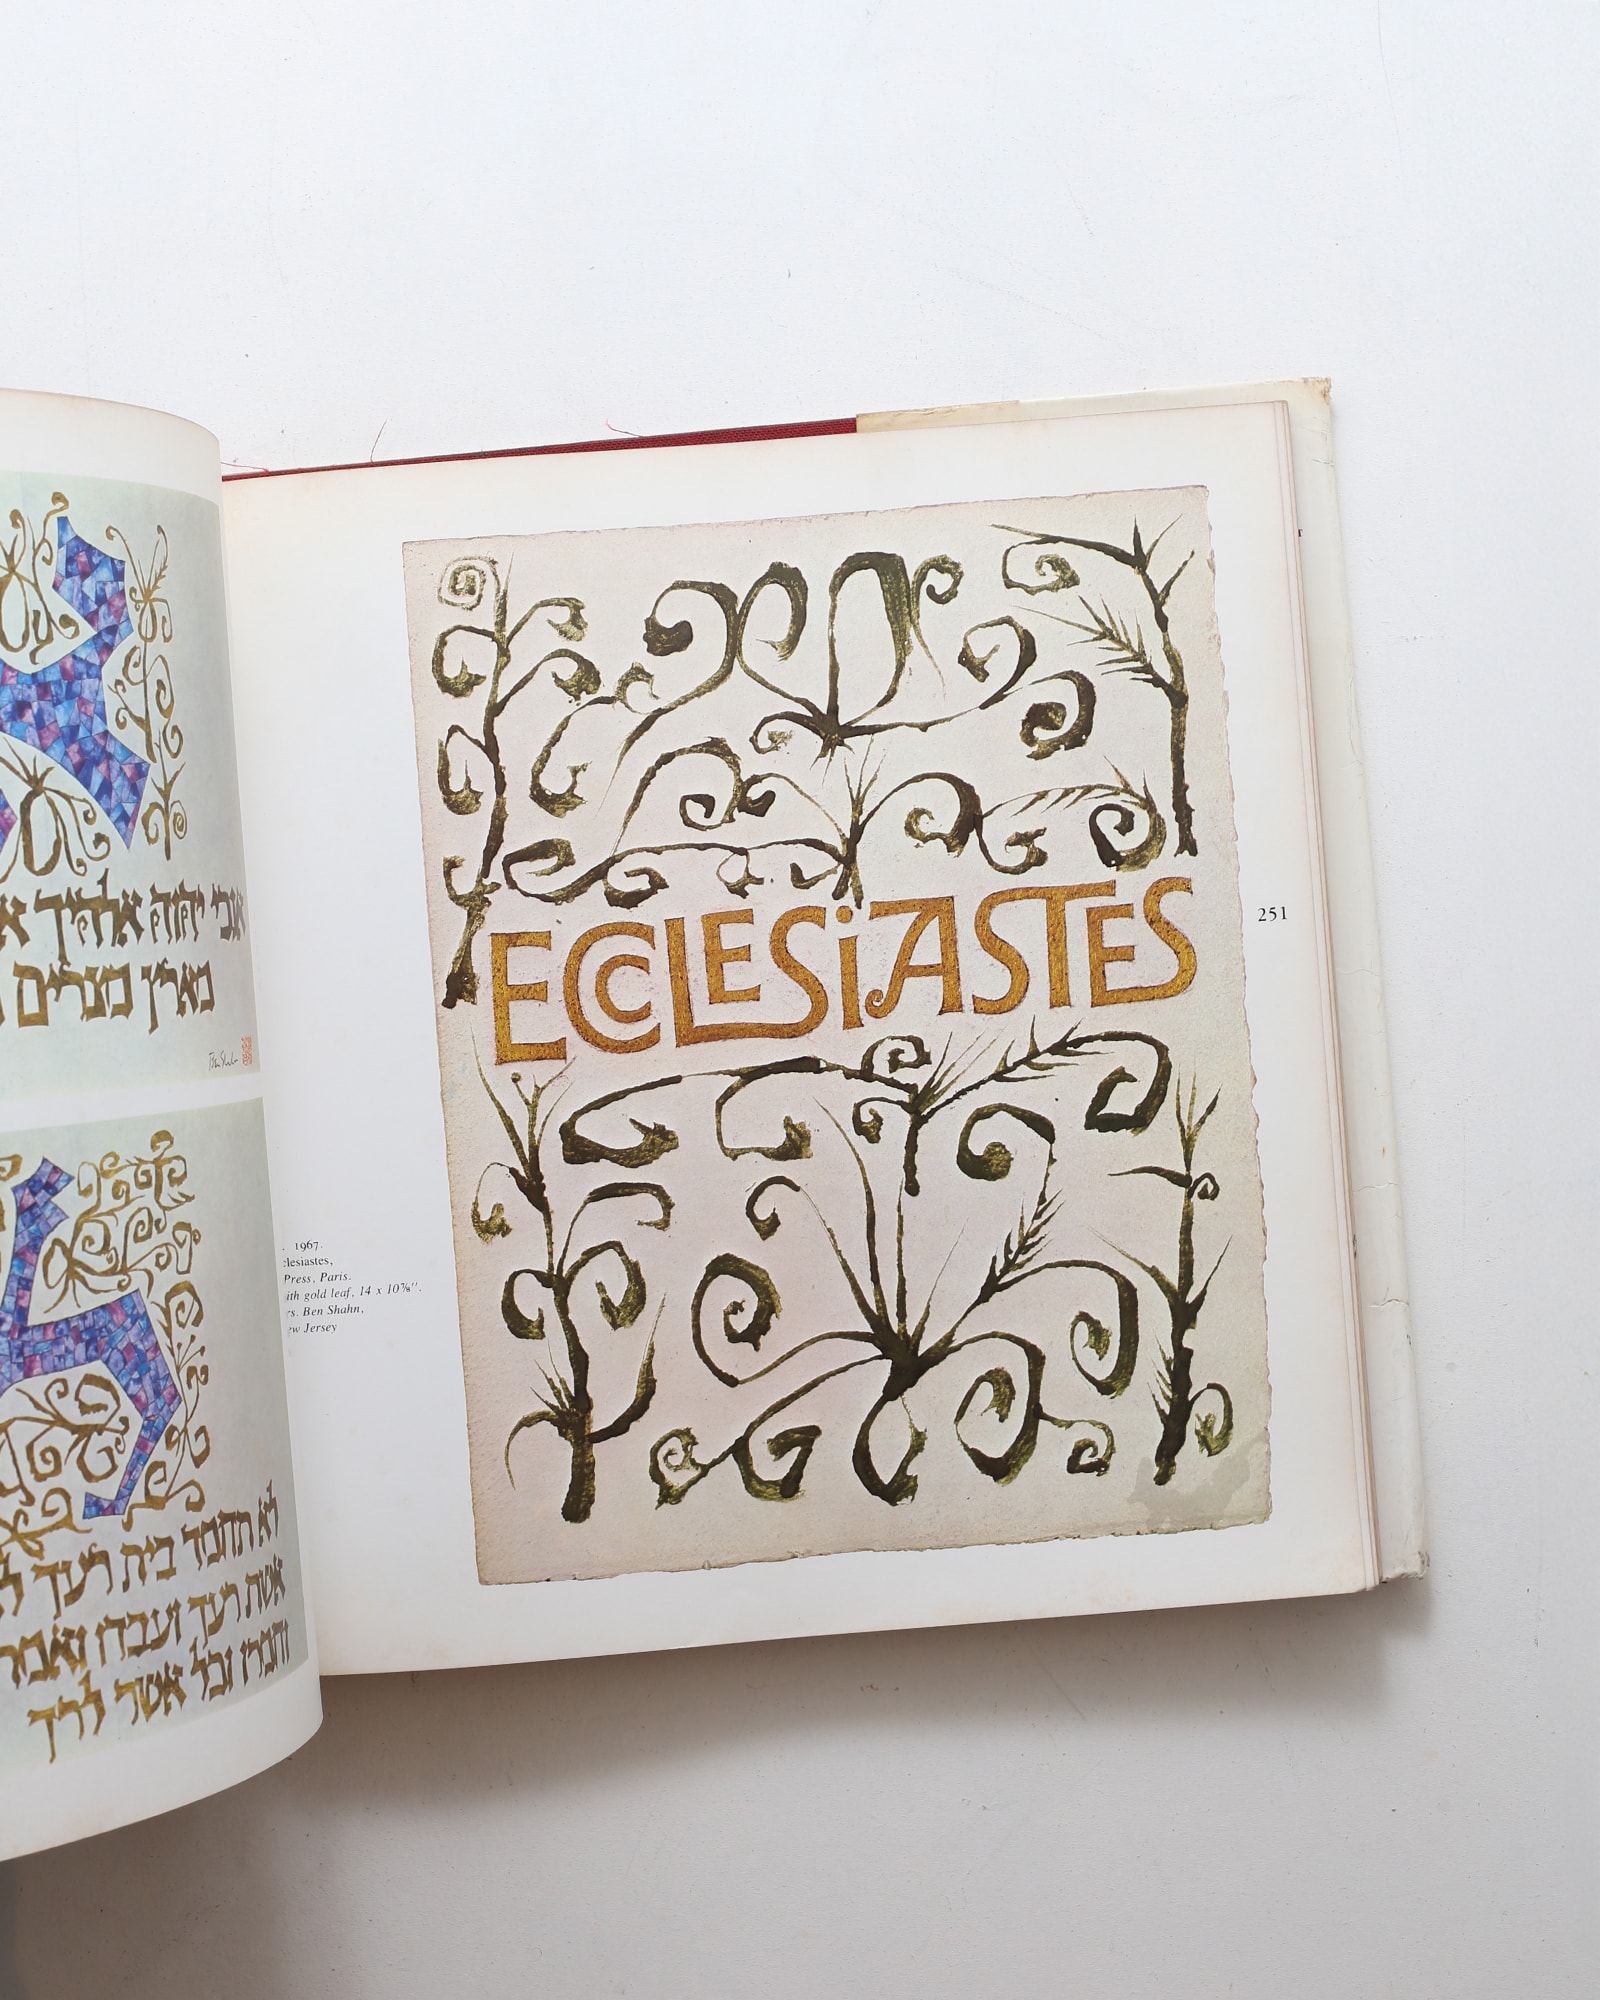 אנכי יהוה אלהיך
מארץ מצרים
Ben Shahn
לא תחמד בית רעך
אשת רעך ועבדו ואמ
וחמרו וכל אשר לרעך
ECCLESIASTES
251
1967.
clesiastes,
Press, Paris.
ith gold leaf, 14 x 10⅞".
rs. Ben Shahn,
ew Jersey